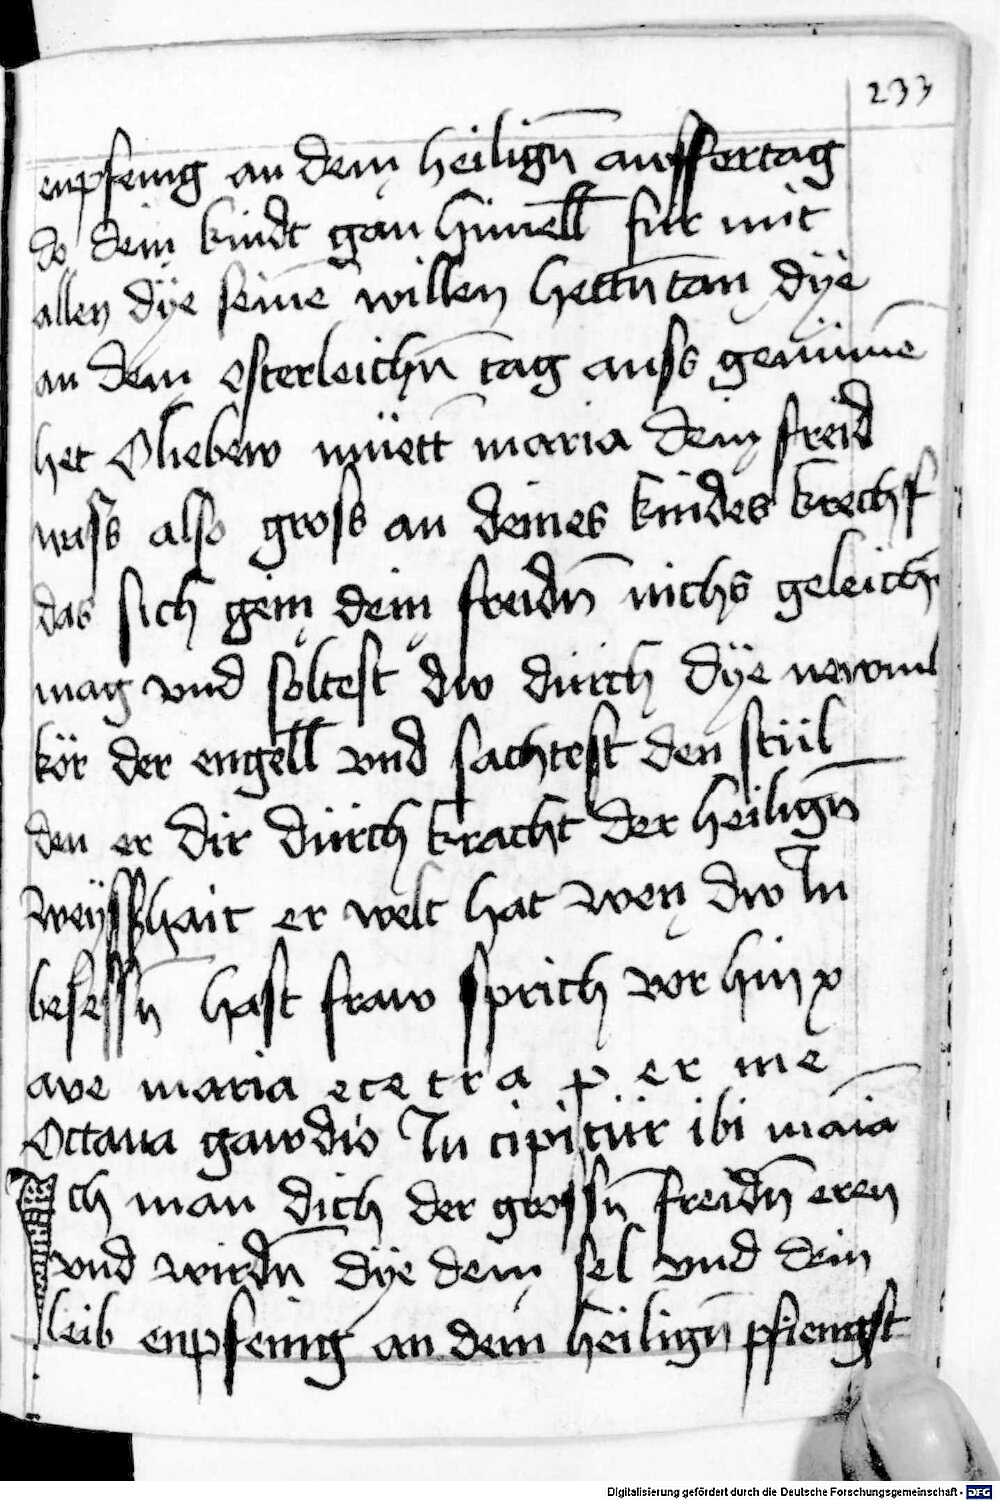 233
enpfeing an dem heilign̄ auffertag
do dein kindt gan himell fur mit
allen dÿe seinē willen hettn̄ tan dÿe
an dem osterleichn̄ tag auss genūmē
het O liebew müett̄ maria dein freid
wass also gross an deines kindes krechf
das sich gein dein freidn̄ nichs geleich
mag vnd soltest dw durch dÿe
kör der engell vnd sachtest den stüil
den er dir dürch kracht der heilign̄
weÿsshait er welt hat wen dw Jn
besessn̄ hast fraw sprich vor hin x
ave maria ecetra p er me
Octaua gawdio Jn cipitür ibi maīa
Ich man dich der grossn̄ freidn̄ eren
vnd wirdn̄ dÿe dein sel vnd dein
leib enpfeing an dem heilign̄ pfiengst
Digitalisierung gefördert durch die Deutsche Forschungsgemeinschaft - DFG